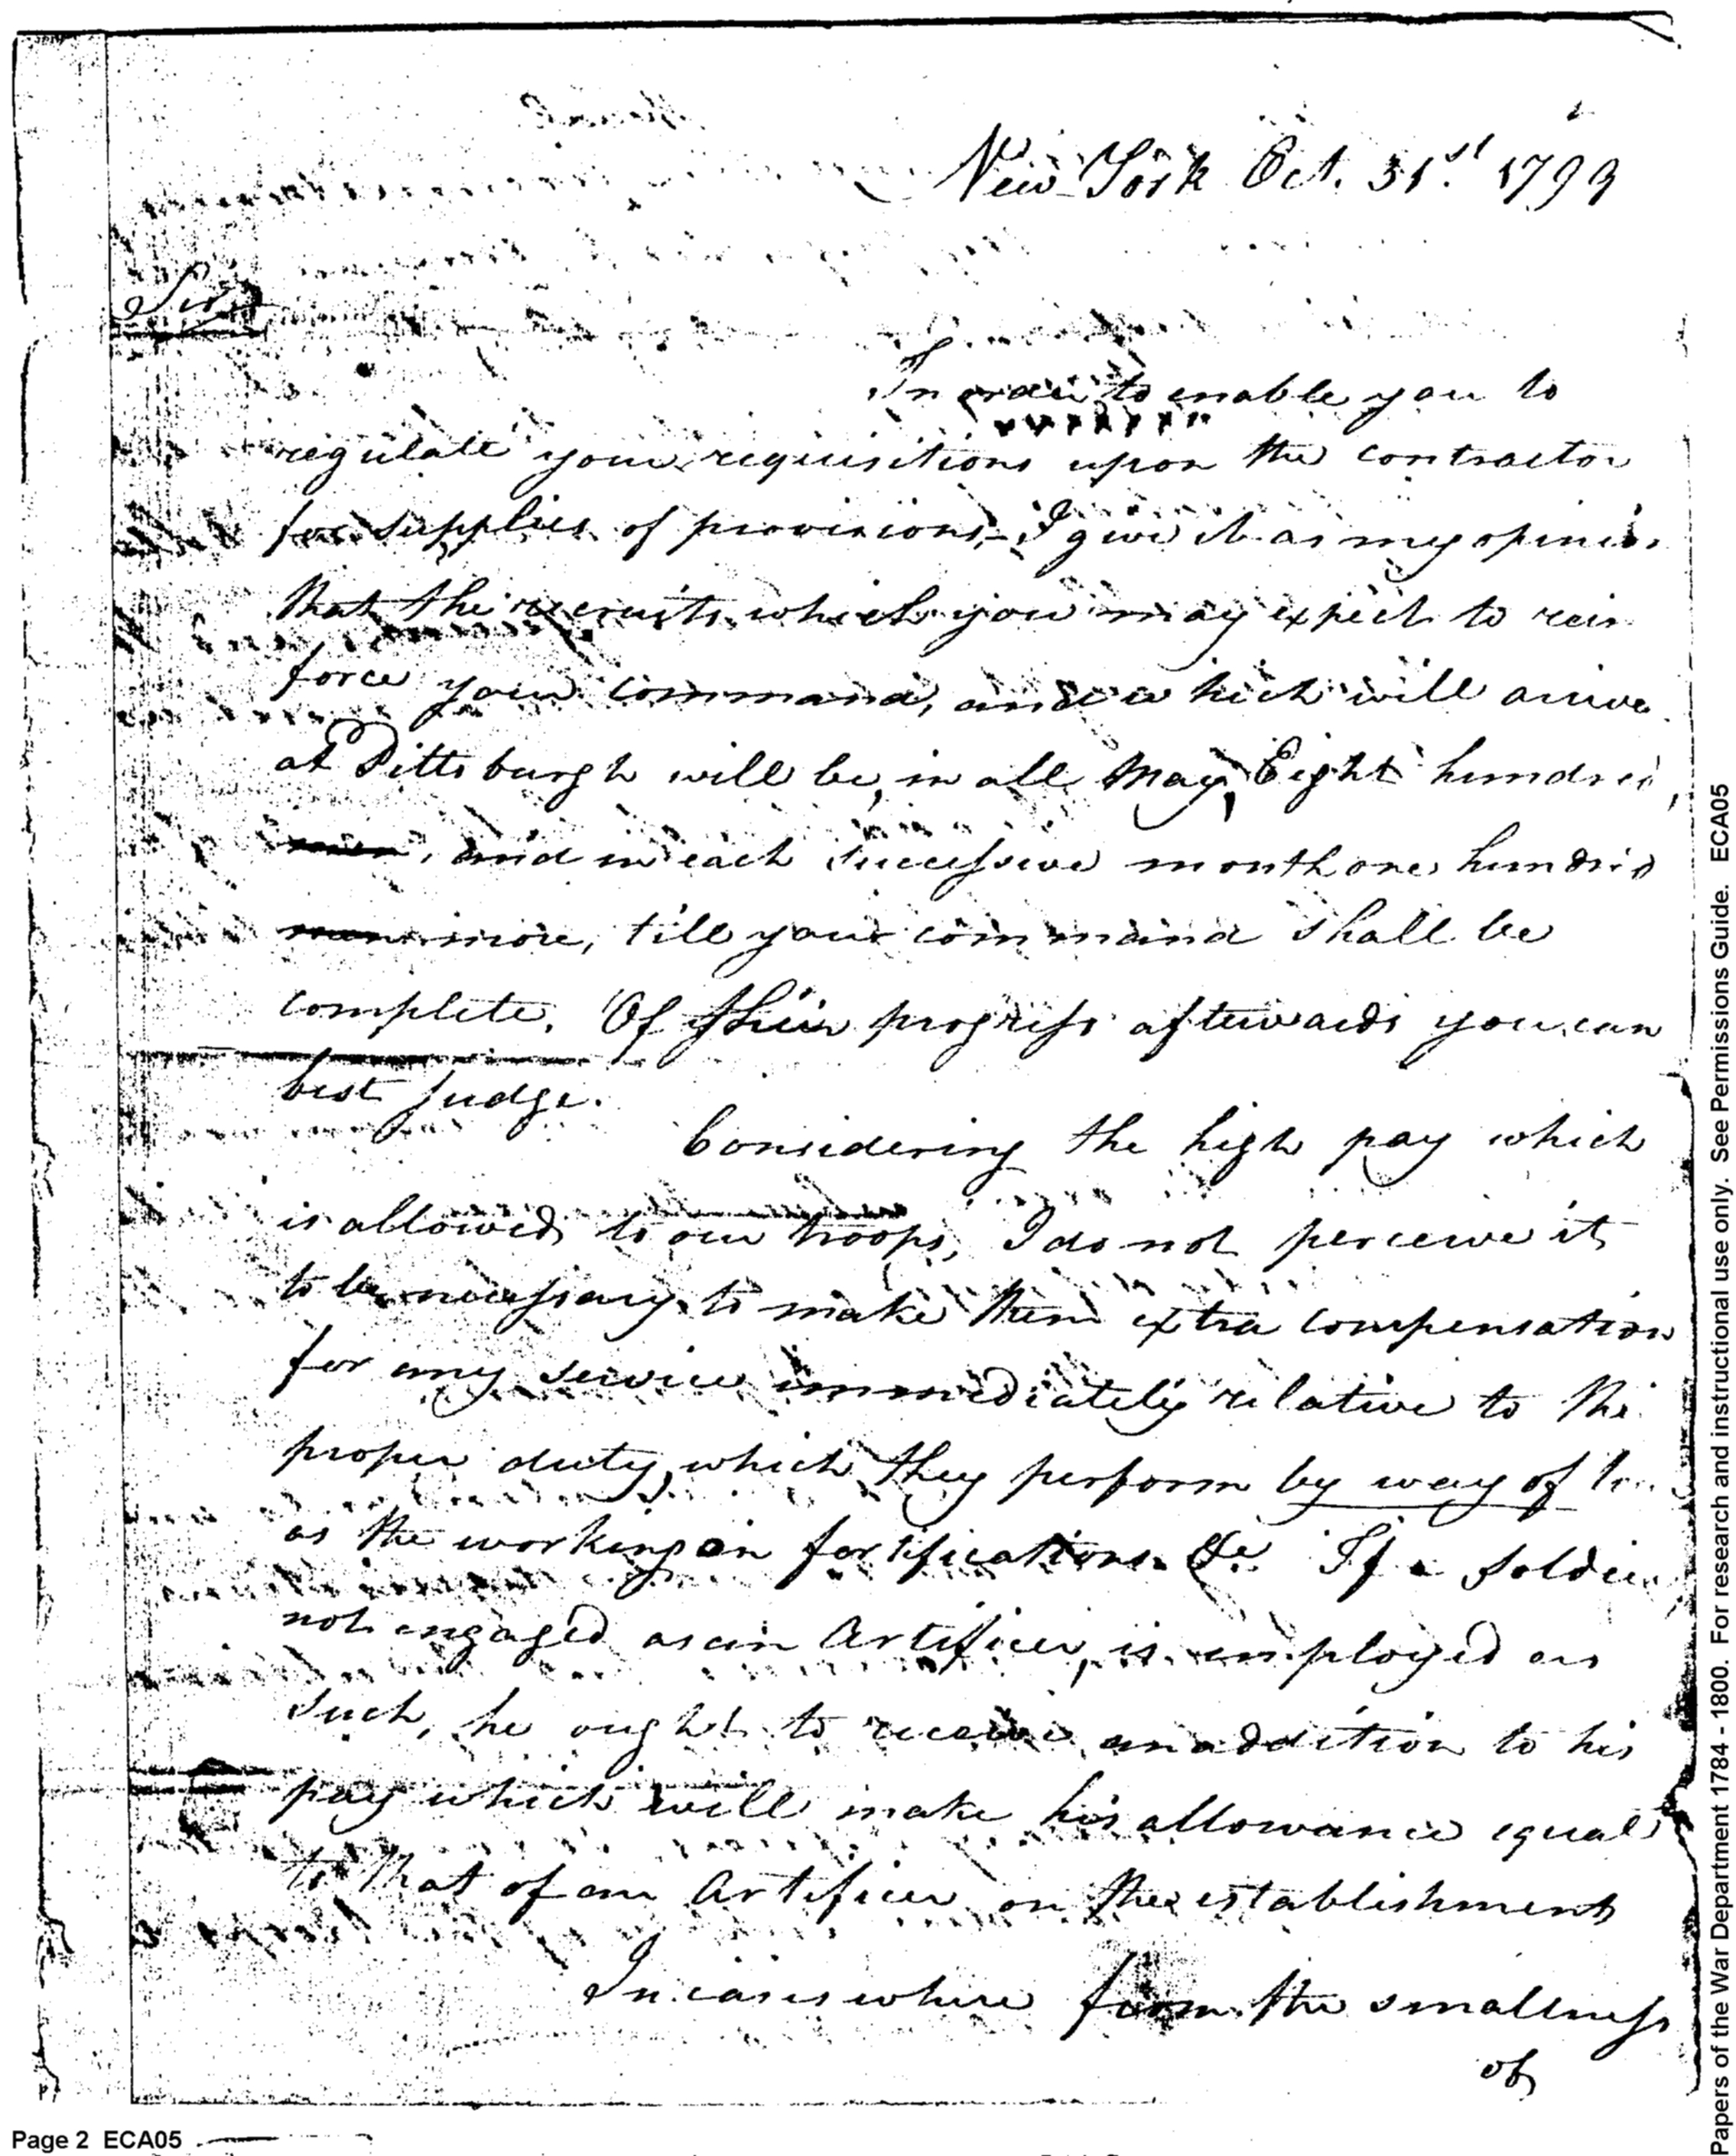 New York Oct. 31st 1799
Sir
In order to enable you to
regulate your requisitions upon the contractor
for supplies of provisions, I give it as my opinion
that the recruits which you may expect to rein
force your command, and which will arrive
at Pittsburgh will be, in all May, Eight hundred
men, and in each successive month one hundred
more, till your command shall be
complete. Of their progress afterwards you can
best judge.
Considering the high pay which
is allowed to our troops, I do not perceive it
to be necessary to make them extra compensation
for any service immediately relative to the
proper duty, which they perform by way of
as the working on fortifications &c. If a soldier
not engaged as an Artificer, is employed as
such, he ought to receive an addition to his
pay which will make his allowance equal
to that of an Artificer on the establishment
In cases where from the smallness
of
Page 2 ECA05
Papers of the War Department 1784 - 1800. For research and instructional use only. See Permissions Guide. ECA05